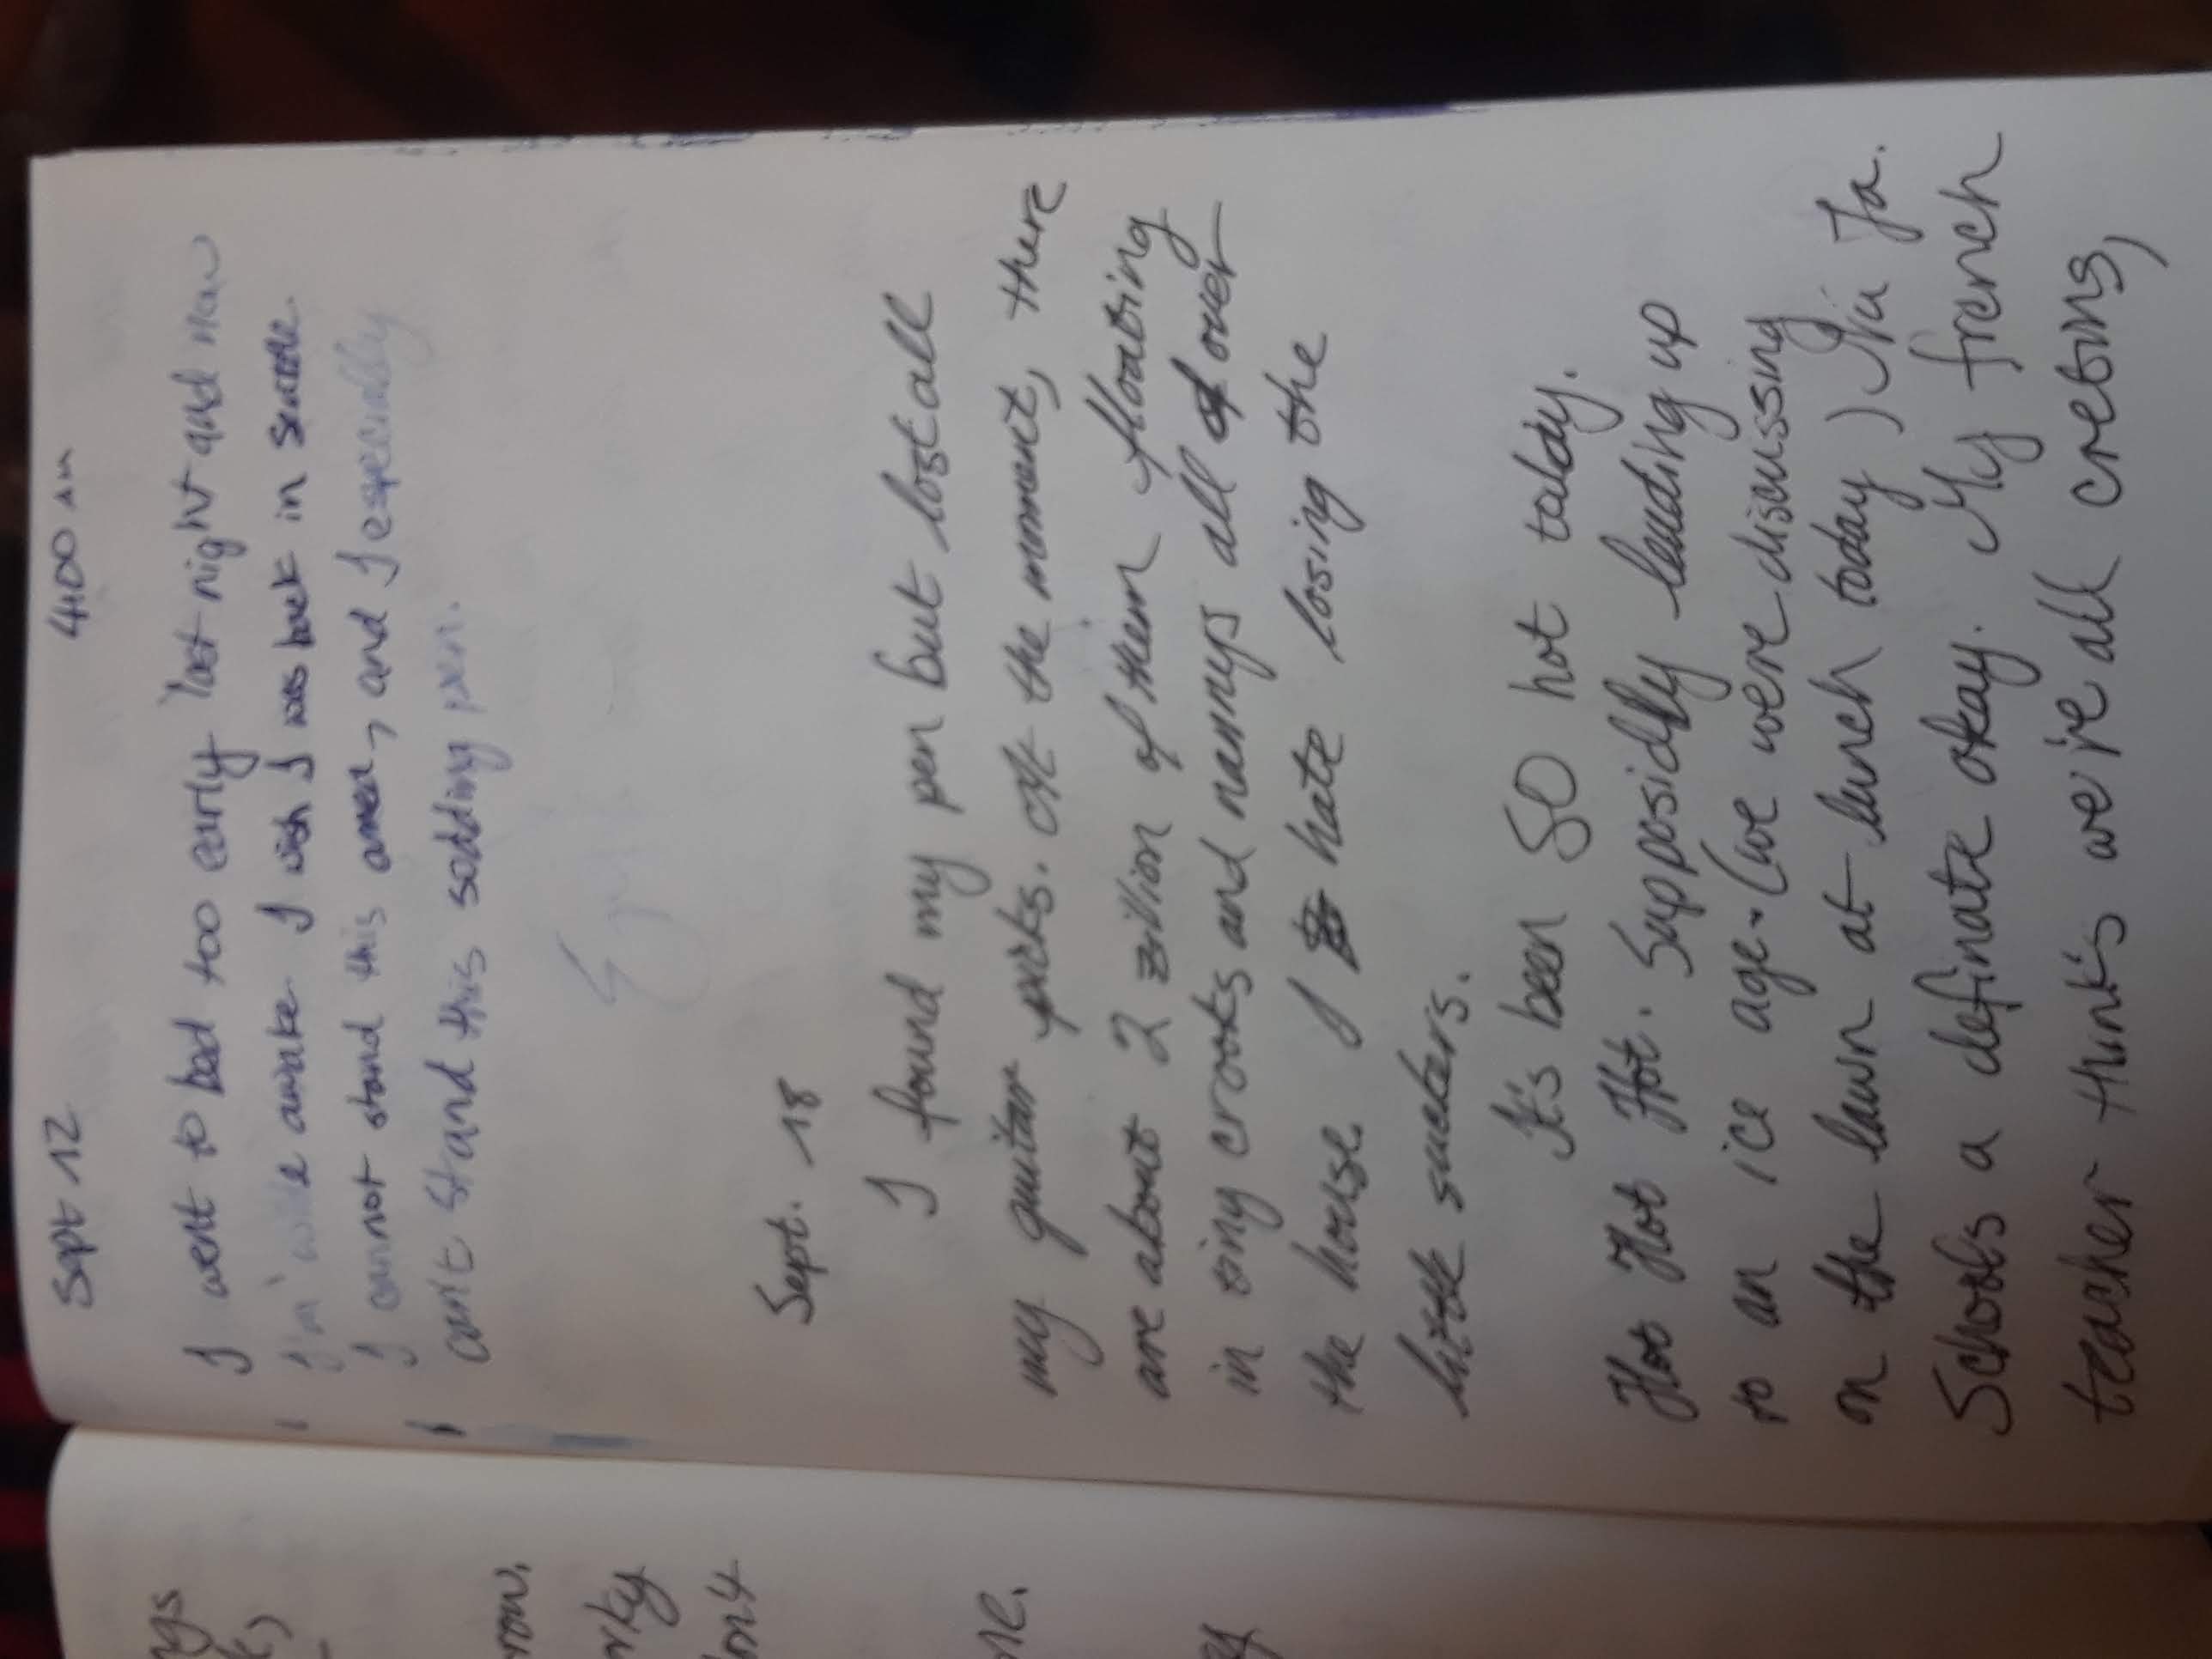 Sept 12 4:00 am
I went to bed too early last night and now
I'm wide awake. I wish I was back in seattle.
I cannot stand this area, and I especially
can't stand this sodding pen.
Sept. 18
I found my pen but lost all
my guitar picks. At the moment, there
are about 2 zillion of them floating
in tiny crooks and nannys all of over
the house. I hate losing the
little suckers.
It's been SO hot today.
Hot Hot Hot. Supposidly leading up
to an ice age. (we were discussing
on the lawn at lunch today)
Schools a definate okay. My french
teacher think's we're all cretins,
ngs
row.